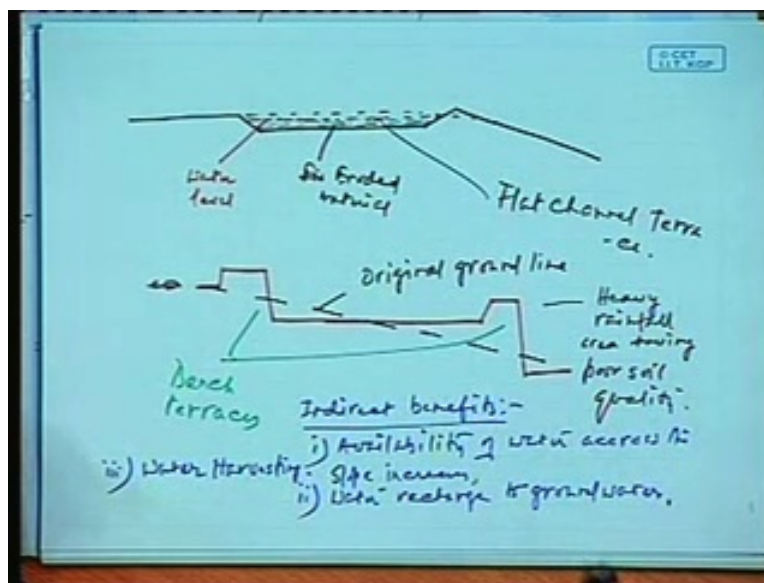 © CET
I.I.T. KGP
Water
level
Eroded
material
Flat Channel Terra
-ce.
Original ground line
Heavy
rainfall
area having
poor soil
quality.
Bench
terraces
Indirect benefits:-
i) Availability of water accross the
slope increases,
ii) Water recharge to groundwater.
iii) Water Harvesting.